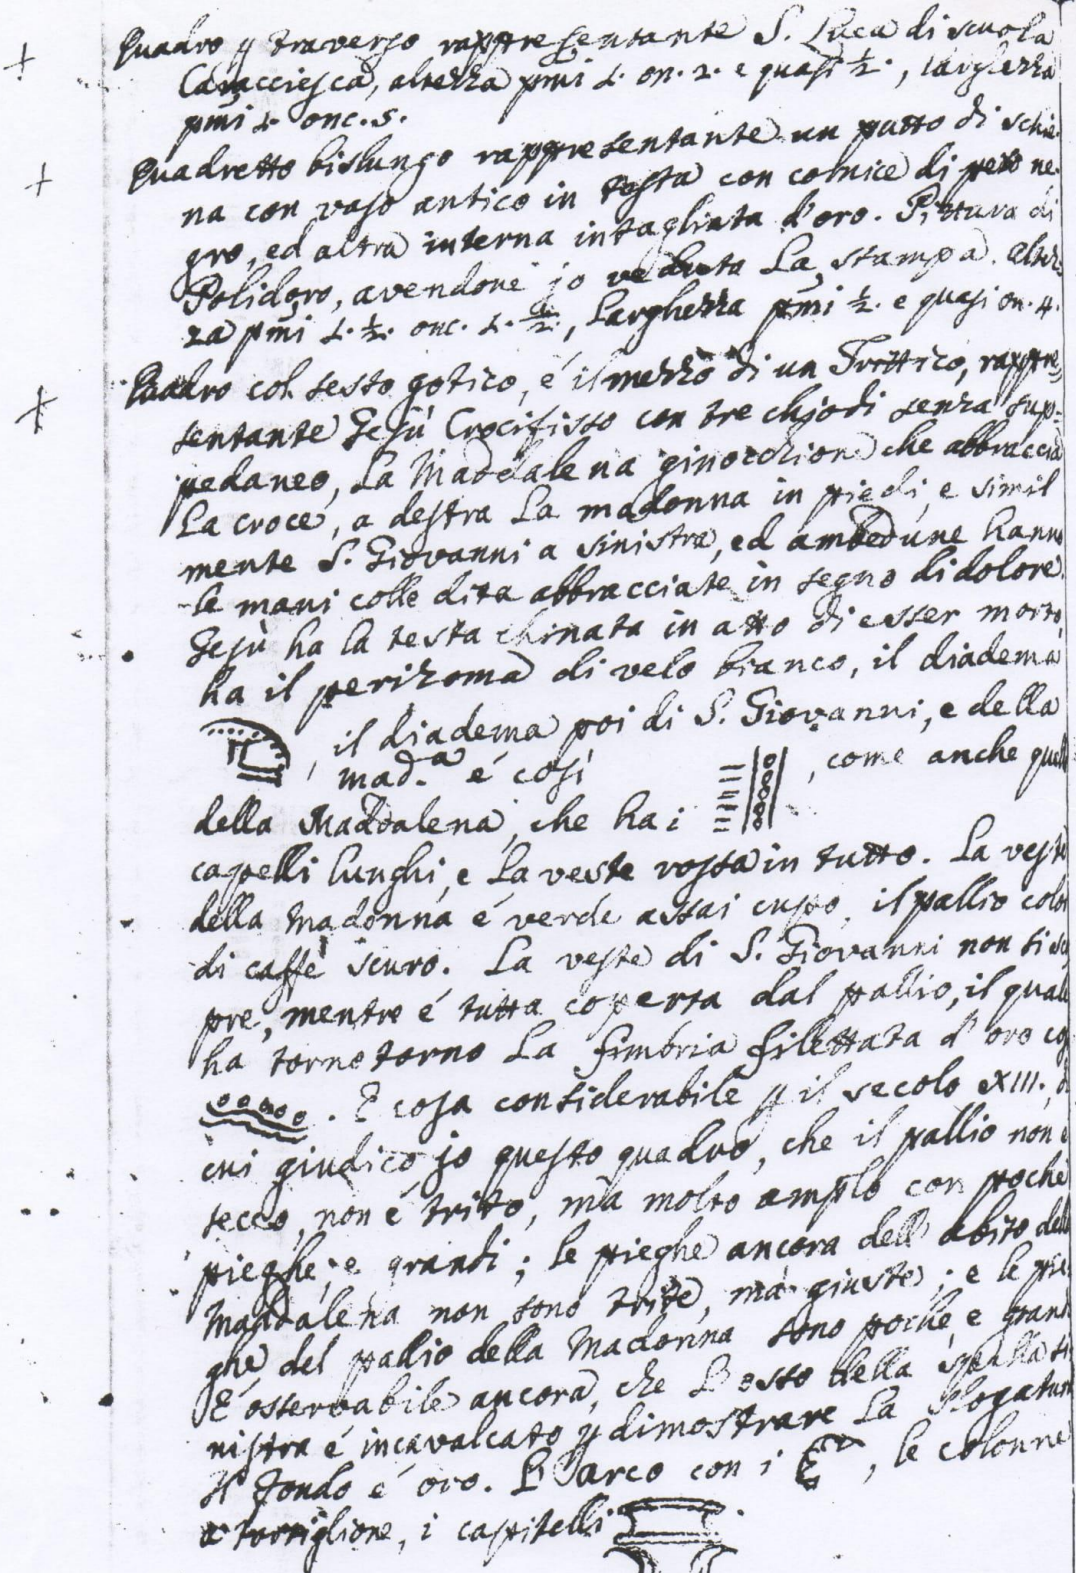 Quadro p traverso rappresentante S. Luca di scuola
Caracciesca, altezza pmi 1. on. 2. e quasi ½., larghezza
pmi 1. onc. 5.
Quadretto bislungo rappresentante un putto di schie-
na con vaso antico in testa con cornice di pero ne-
gro, ed altra interna intagliata d'oro. Pittura di
Polidoro, avendone jo veduta La stampa. Altez-
za pmi 1. ½. onc. 1. ½., Larghezza pmi ½. e quasi on. 4.
Quadro col sesto gotico, é il mezzo di un Trittico, rappre-
sentante Gesù Crocifisso con tre chiodi senza sup-
pedaneo, La Maddalena ginocchioni che abbraccia
La croce, a destra La madonna in piedi, e simil
mente S. Giovanni a sinistra, ed ambedune hanno
le mani colle dita abbracciate in segno di dolore.
Gesù ha la testa chinata in atto di esser morto,
ha il perizoma di velo bianco, il diadema
, il diadema poi di S. Giovanni, e della
mad.a é così , come anche quell
della Maddalena, che ha i
capelli lunghi, e La veste rossa in tutto. La veste
della Madonna é verde assai cupo, il pallio color
di caffè scuro. La veste di S. Giovanni non si sco
pre, mentre é tutta coperta dal pallio, il quale
ha torno torno La fimbria filettata d'oro co
. E cosa considerabile p il secolo XIII, di
cui giudico jo questo quadro, che il pallio non é
secco, non é trito, ma molto amplo con poche
pieghe, e grandi; le pieghe ancora dell'abito della
Maddalena non sono trite, ma giuste; e le pie
ghe del pallio della Madonna sono poche, e grand
E' osservabile ancora, che L'osso della spalla si
nistra é incavalcato p dimostrare La slogatura
Il fondo é oro. L'arco con i , le colonne
a tortiglione, i capitelli .